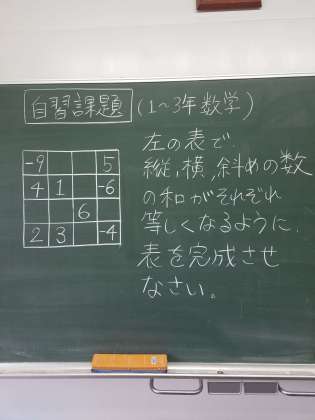 自習課題 (1~3年 数学)
左の表で、
縦,横,斜めの数
の和がそれぞれ
等しくなるように、
表を完成させ
なさい。
-9 5
4 1 -6
6
2 3 -4